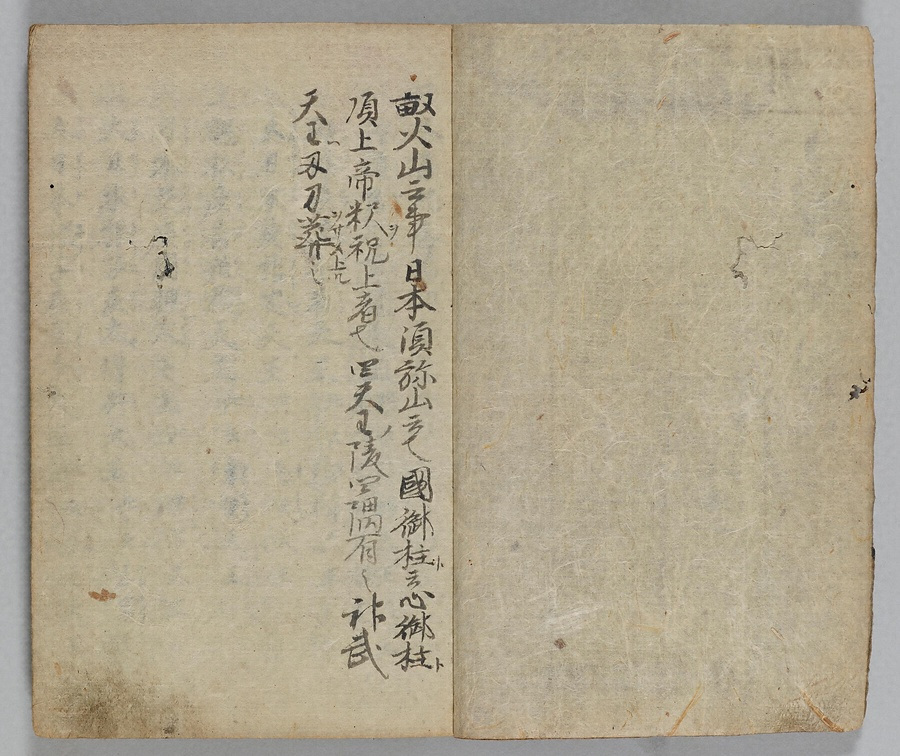 畝火山云事日本須弥山云也國御柱云心御柱ト
頂上帝釈祝上者也四天王陵四隅有之神武
天王刄刀葬之